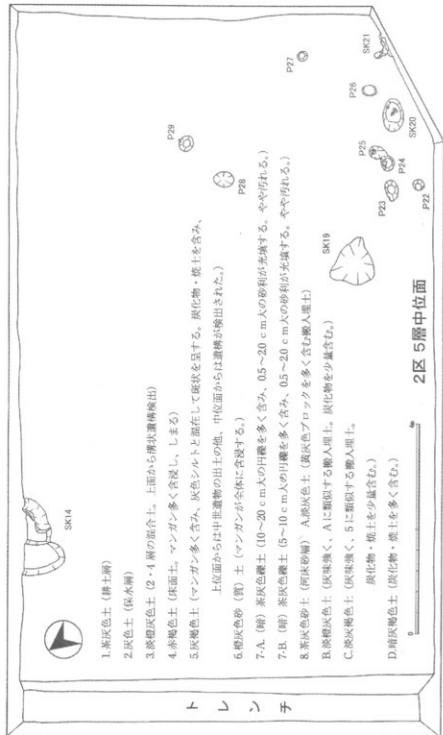 SK14
P29
P28
P27
SK21
P26
SK20
P25
P24
P23
P22
SK19
1.茶灰色土（耕土層）
2.灰色土（保水層）
3.淡橙灰色土（2・4層の混合土。上面から溝状遺構検出）
4.赤褐色土（床面土。マンガン多く含浸し、しまる）
5.灰褐色土（マンガン多く含み、灰色シルトと混在して斑状を呈する。炭化物・焼土を含み、
上位面からは中世遺物の出土の他、中位面からは遺構が検出された。）
6.橙灰色砂（質）土（マンガンが全体に含浸する。）
7-A.（暗）茶灰色礫土（10～20cm大の円礫を多く含み、0.5～2.0cm大の砂利が充填する。やや汚れる。）
7-B.（暗）茶灰色礫土（5～10cm大の円礫を多く含み、0.5～2.0cm大の砂利が充填する。やや汚れる。）
8.茶灰色砂土（河床砂層） A.淡灰色土（黄灰色ブロックを多く含む搬入埋土）
B.淡橙灰色土（灰味強く、Aに類似する搬入埋土。炭化物を少量含む。）
C.淡灰褐色土（灰味強く、5に類似する搬入埋土。
炭化物・焼土を少量含む。）
D.暗灰褐色土（炭化物・焼土を多く含む。）
0
4m
2区 5層中位面
トレンチ